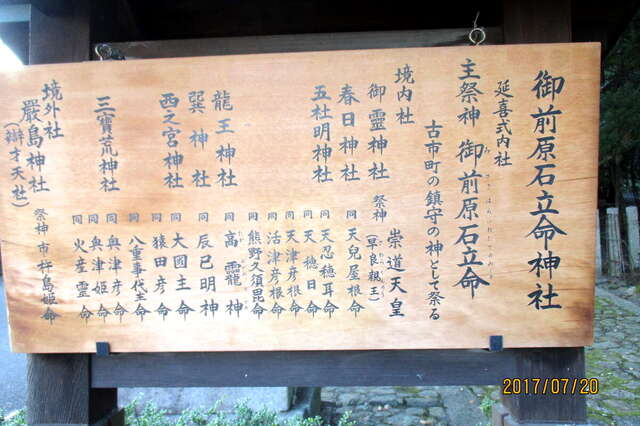 御前原石立命神社
延喜式内社
主祭神 御前原石立命
みさきはらいわたてのみこと
古市町の鎮守の神として祭る
境内社
御靈神社 祭神 崇道天皇
(早良親王)
春日神社 同 天兒屋根命
五社明神社 同 天忍穂耳命
同 天穂日命
同 天津彦根命
同 活津彦根命
同 熊野久須毘命
龍王神社 同 高龗神
巽神社 同 辰巳明神
西之宮神社 同 大國主命
同 猿田彦命
同 八重事代主命
三寶荒神社 同 奥津彦命
同 奥津姫命
同 火産靈命
境外社
嚴島神社 祭神 市杵島姫命
(辯才天社)
2017/07/20